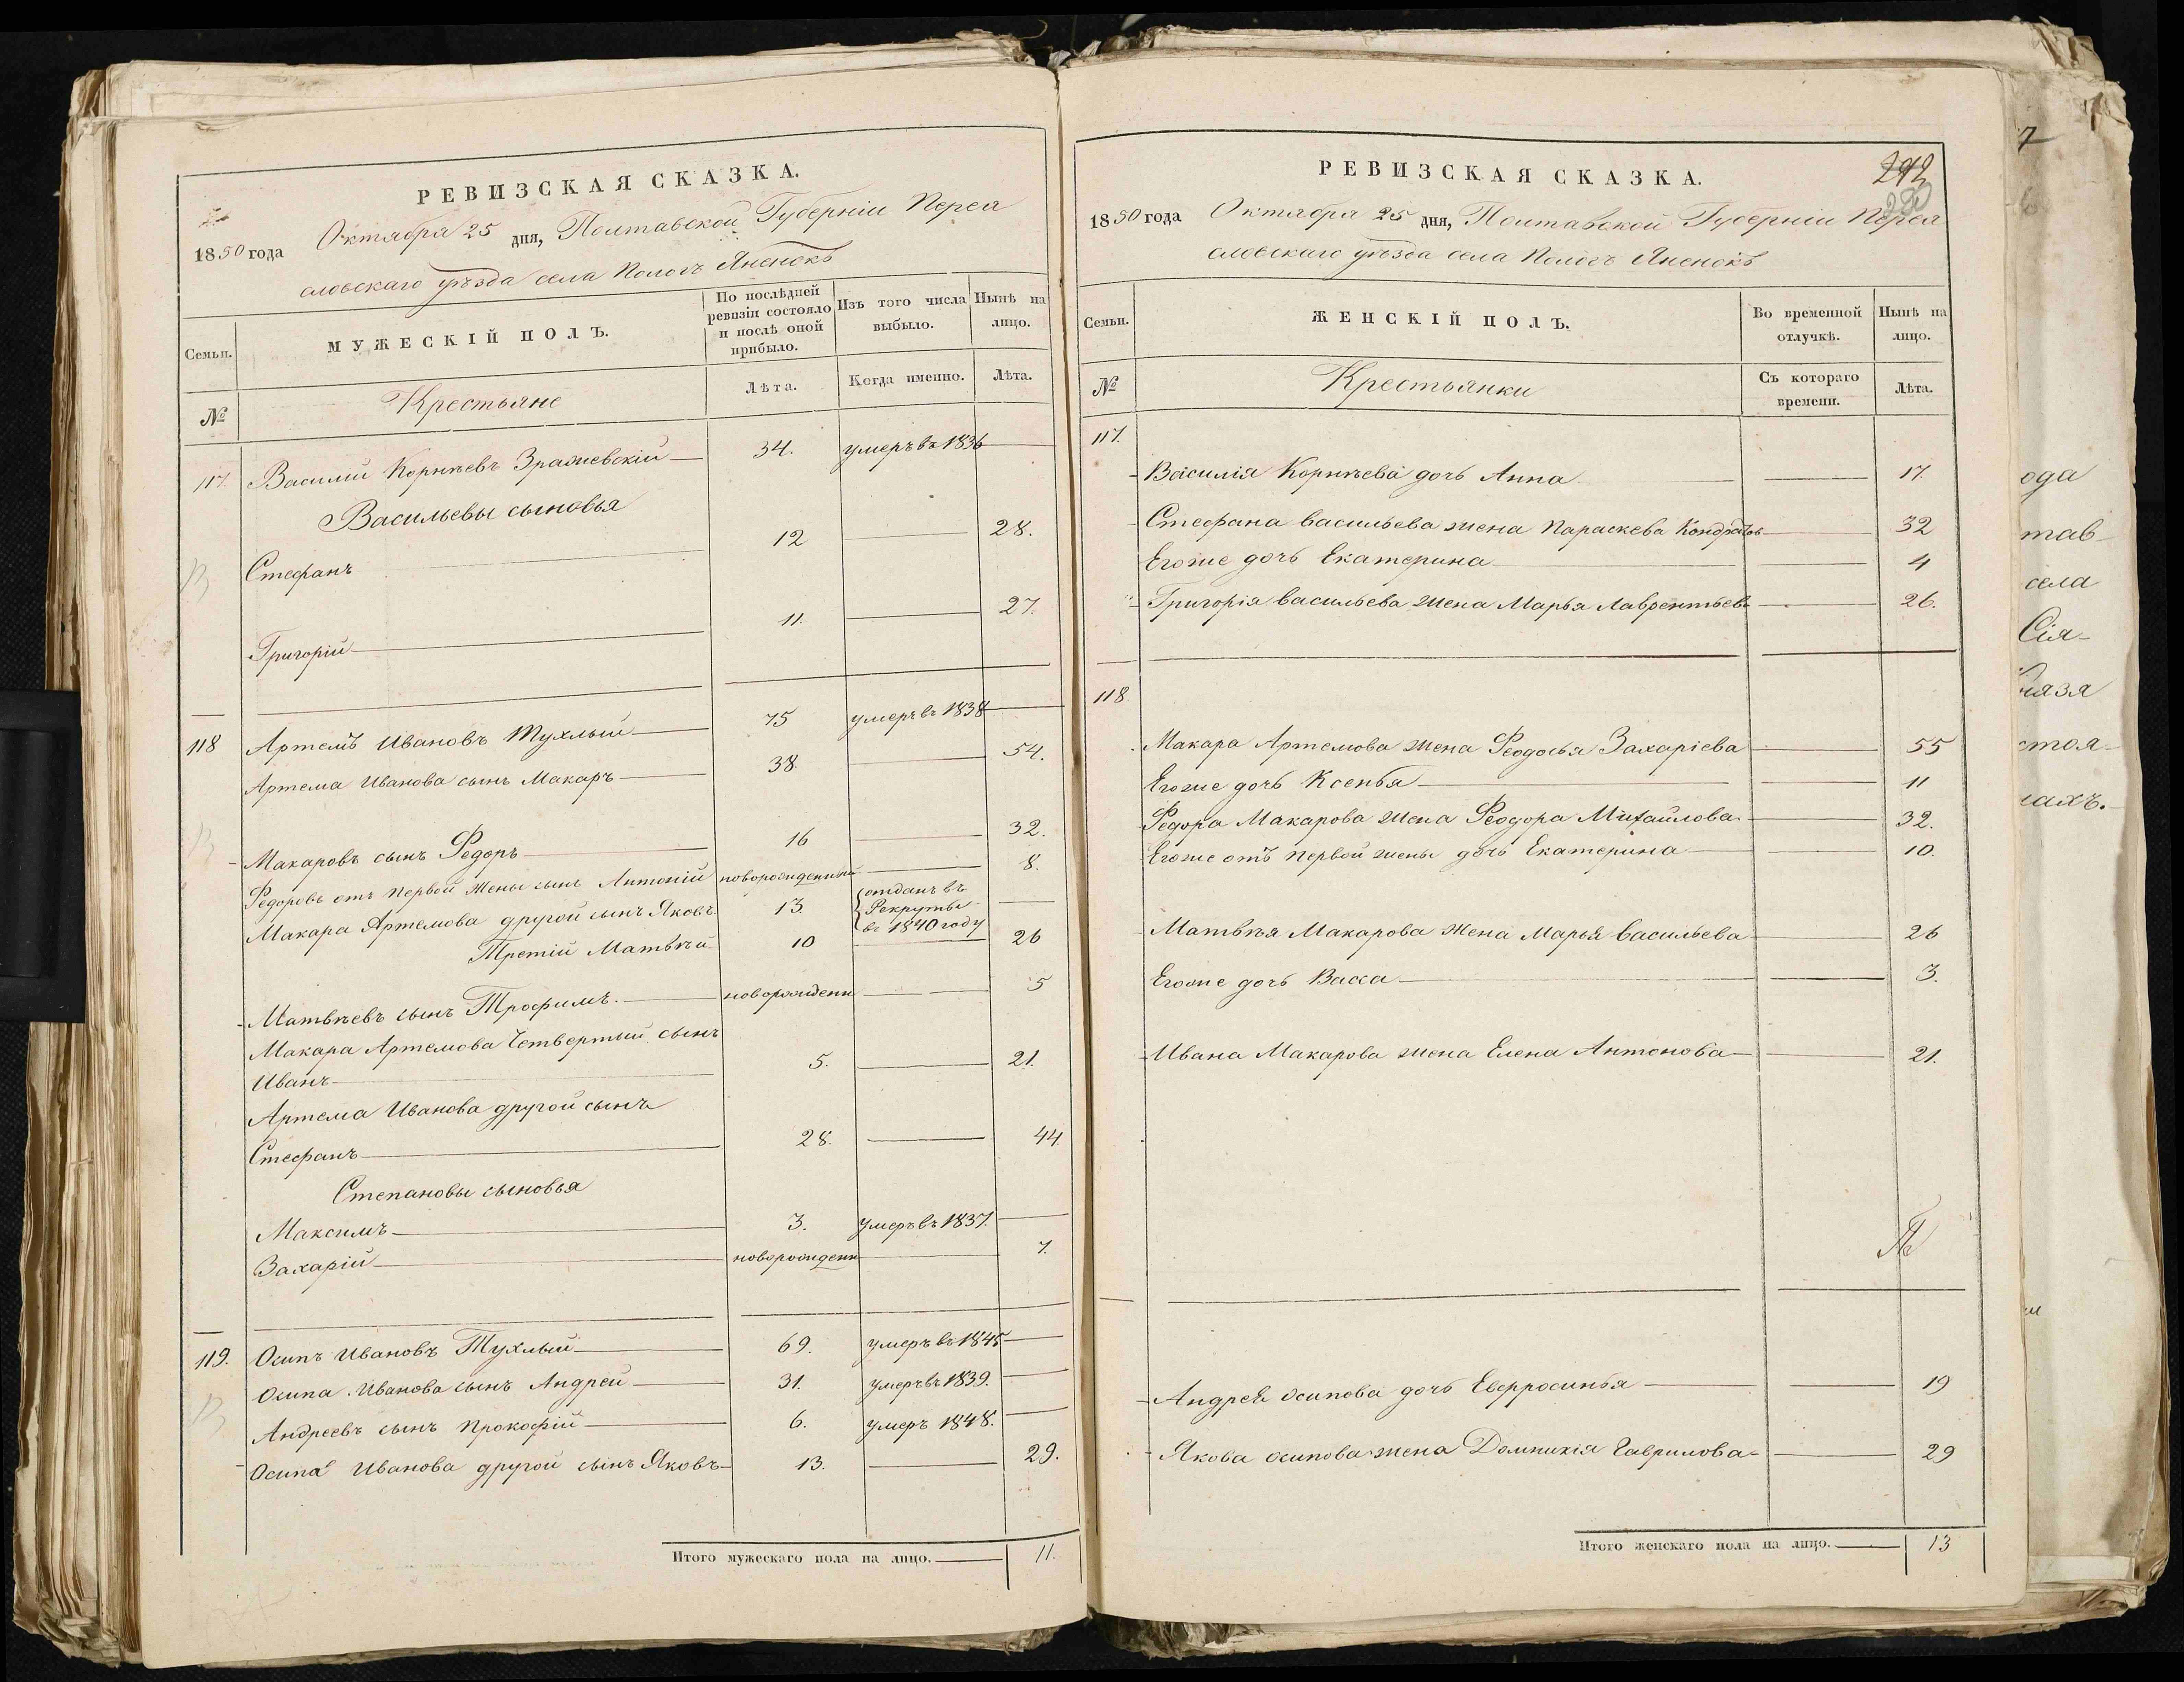 РЕВИЗСКАЯ СКАЗКА.
1850 года Октября 25 дня, Полтавской Губерніи Перея
словскаго уѣзда села Пологъ Яненокъ
Семьи.
МУЖЕСКІЙ ПОЛЪ.
По послѣдней ревизіи состояло и послѣ оной прибыло.
Изъ того числа выбыло.
Нынѣ на лицо.
№
Крестьяне
Лѣта.
Когда именно.
Лѣта.
117. Василій Корнѣевъ Зражевскій 34. умеръ въ 1836
Васильевы сыновья
Стефанъ 12 28.
Григорій 11. 27.
118 Артемъ Ивановъ Тухлый 75 умеръ въ 1838
Артема Иванова сынъ Макаръ 38. 54.
Макаровъ сынъ Федоръ 16 32.
Федоровъ отъ первой жены сынъ Антоній новорожденный 8.
Макара Артемова другой сынъ Яковъ 13. отданъ въ
Рекруты
въ 1840 году
Третій Матвѣй 10 26
Матвѣевъ сынъ Трофимъ. новорожденн 5
Макара Артемова Четвертый сынъ
Иванъ 5. 21.
Артема Иванова другой сынъ
Стефанъ 28. 44.
Степановы сыновья
Максимъ 3. умеръ въ 1837.
Захарій новорожденн 7.
119. Осипъ Ивановъ Тухлый 69. умеръ въ 1845
Осипа Иванова сынъ Андрей 31. умеръ въ 1839.
Андреевъ сынъ Прокофій 6. умеръ 1848.
Осипа Иванова другой сынъ Яковъ 13. 29.
Итого мужескаго пола на лицо. 11.
РЕВИЗСКАЯ СКАЗКА.
1850 года Октября 25 дня, Полтавской Губерніи Перея
словскаго уѣзда села Пологъ Яненокъ
Семьи.
ЖЕНСКІЙ ПОЛЪ.
Во временной отлучкѣ.
Нынѣ на лицо.
№
Крестьянки
Съ котораго времени.
Лѣта.
117.
Василія Корнѣева дочь Анна 17.
Стефана Васильева жена Параскева Кондратьев 32
Егоже дочь Екатерина 4
Григорія Васильева жена Марья Лаврентьев 26.
118.
Макара Артемова жена Феодосья Захаріева 55
Егоже дочь Ксенья 11
Федора Макарова жена Феодора Михайлова 32.
Егоже отъ первой жены дочь Екатерина 10.
Матвѣя Макарова жена Марья Васильева 26
Егоже дочь Васса 3.
Ивана Макарова жена Елена Антонова 21.
Андрея Осипова дочь Евфросинья 19
Якова Осипова жена Домникія Гаврилова 29
Итого женскаго пола на лицо. 13
ода
тав
села
Сія
стоя